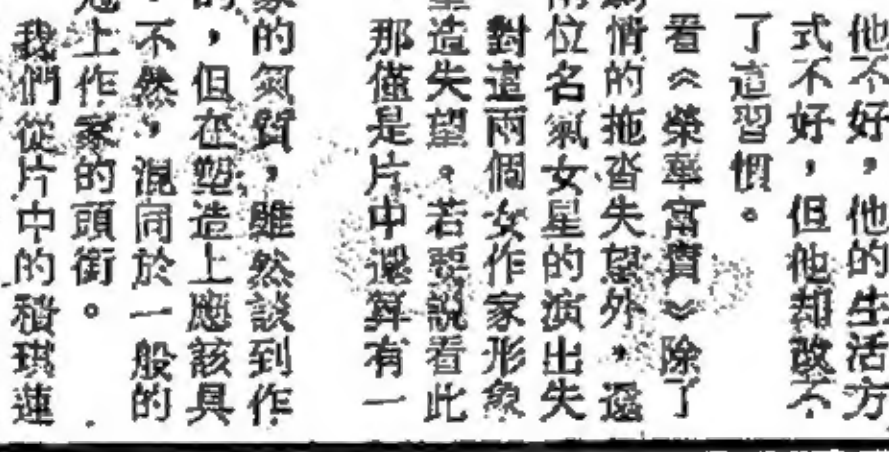 他不好，他的生活方
式不好，但他却改不
了這習慣。
看《榮華富貴》除了
情的拖沓失望外，還
的位名氣女星的演出失
對這兩個女作家形象
造失望。若要說看此
那僅是片中還算有一
的氣質，雖然談到作
的，但在塑造上應該具
。不然，混同於一般的
上作家的頭銜。
我們從片中的積琪蓮